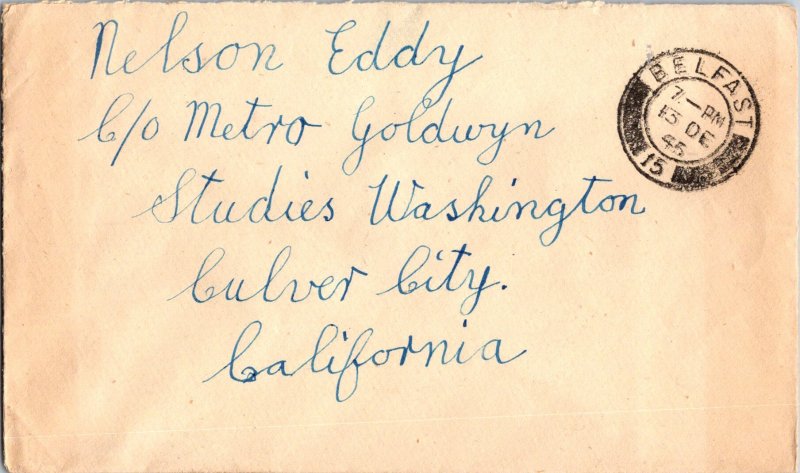 Nelson Eddy
C/o Metro Goldwyn
Studies Washington
Culver City.
California
BELFAST
7 - PM
13 DE
45
15